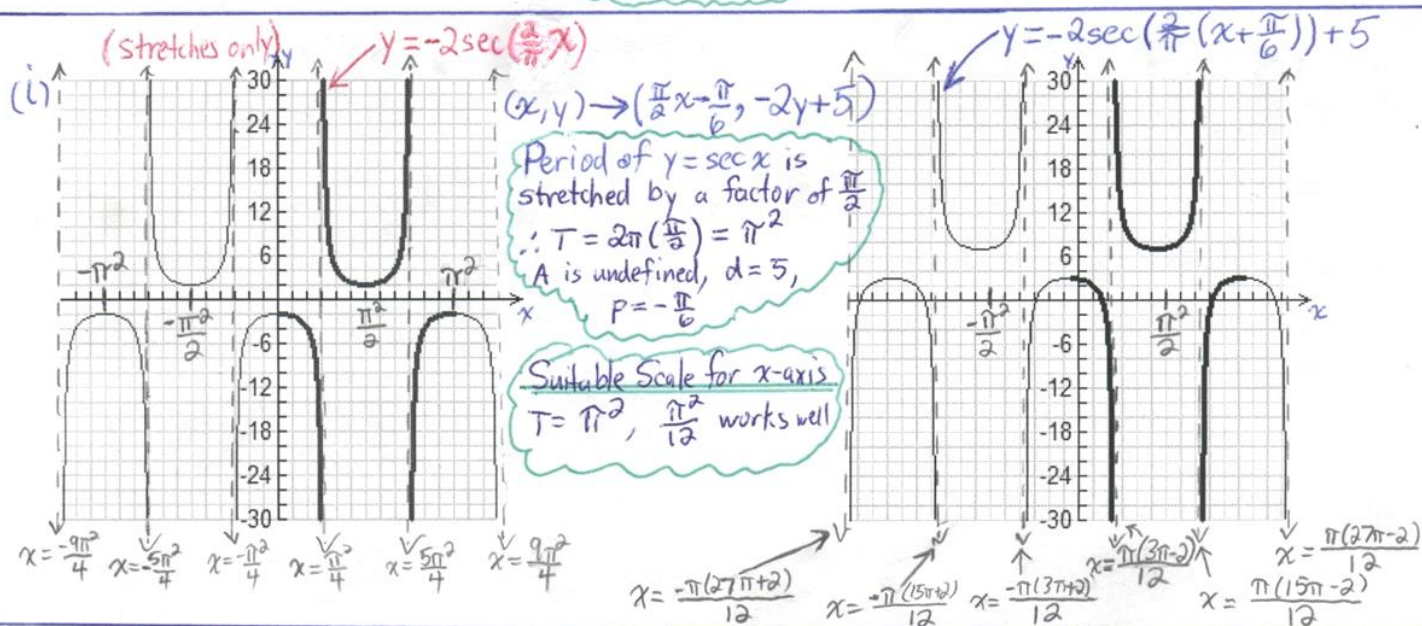 (i)
(stretches only)
y = -2sec(2/π x)
y
30
24
18
12
6
-6
-12
-18
-24
-30
-π²
-π²/2
π²/2
π²
x
x = -9π²/4
x = -5π²/4
x = -π²/4
x = π²/4
x = 5π²/4
x = 9π²/4
(x,y) → (π/2 x - π/6, -2y+5)
Period of y = sec x is
stretched by a factor of π/2
∴ T = 2π(π/2) = π²
A is undefined, d = 5,
p = -π/6
Suitable Scale for x-axis
T = π², π²/12 works well
y = -2sec(2/π (x+π/6)) + 5
y
30
24
18
12
6
-6
-12
-18
-24
-30
-π²/2
π²/2
x
x = -π(27π+2)/12
x = -π(15π+2)/12
x = -π(3π+2)/12
x = π(3π-2)/12
x = π(15π-2)/12
x = π(27π-2)/12